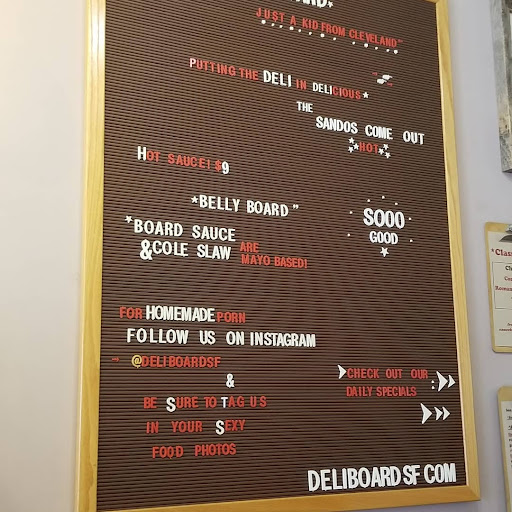 JUST A KID FROM CLEVELAND"
PUTTING THE DELI IN DELICIOUS*
THE
SANDOS COME OUT
HOT
HOT SAUCE! $9
*BELLY BOARD"
SOOO
GOOD
*BOARD SAUCE
& COLE SLAW ARE
MAYO BASED!
FOR HOMEMADE PORN
FOLLOW US ON INSTAGRAM
- @DELIBOARDSF
&
BE SURE TO TAG US
IN YOUR SEXY
FOOD PHOTOS
CHECK OUT OUR
DAILY SPECIALS :
DELIBOARDSF COM